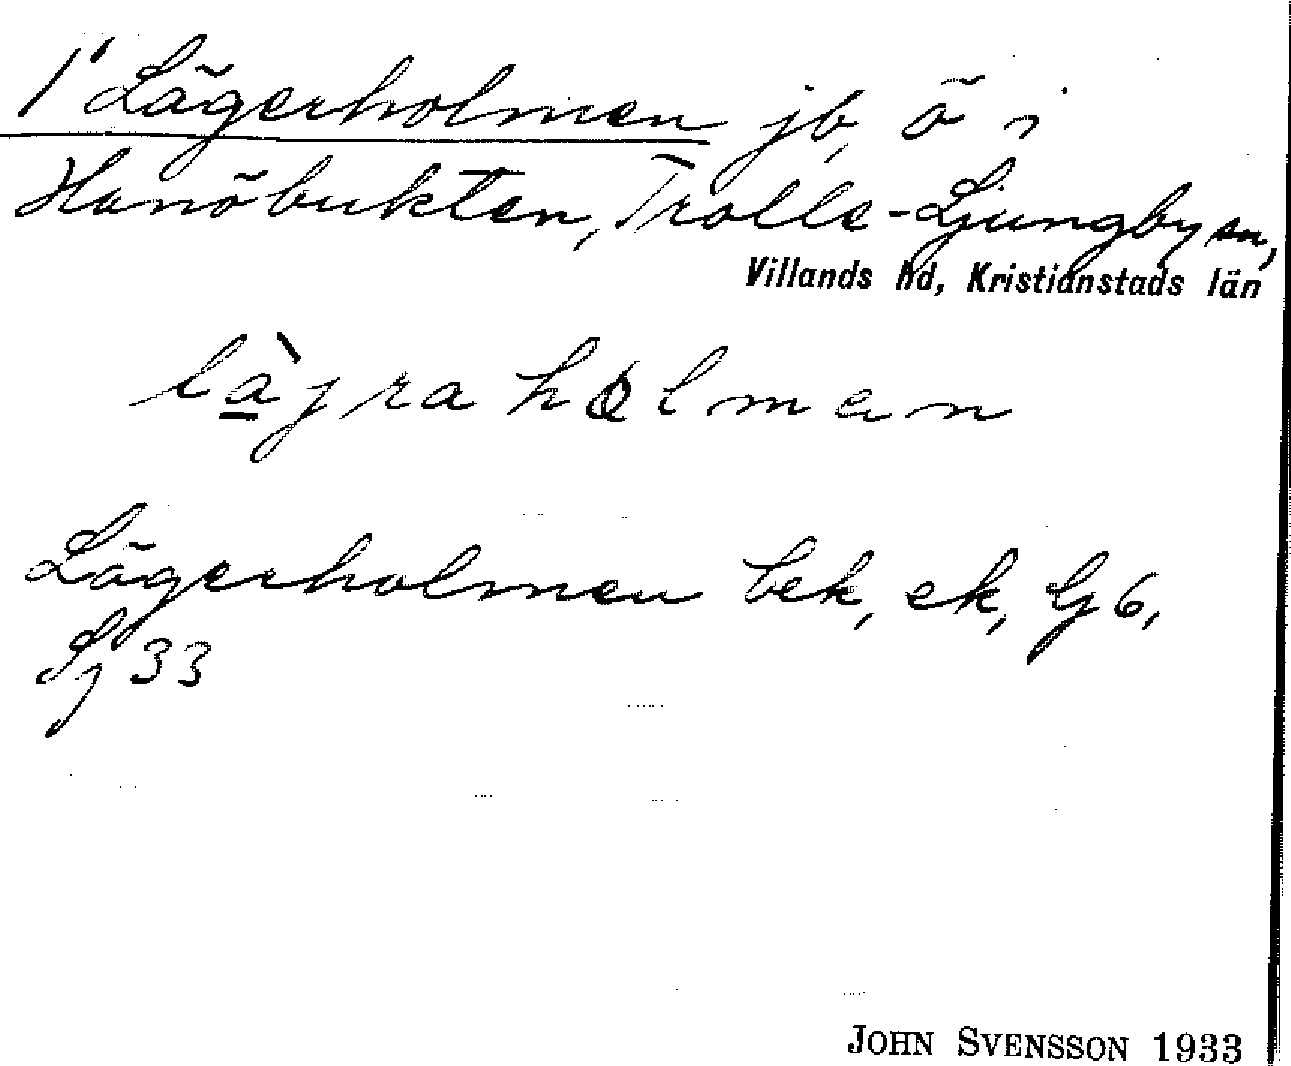 1' Lägerholmen jb, ö i
Hanöbukten, Trolle-Ljungby sn,
Villands hd, Kristianstads län
làgra holman
Lägerholmen bek, ek, Gj 6,
Sj 33
JOHN SVENSSON 1933